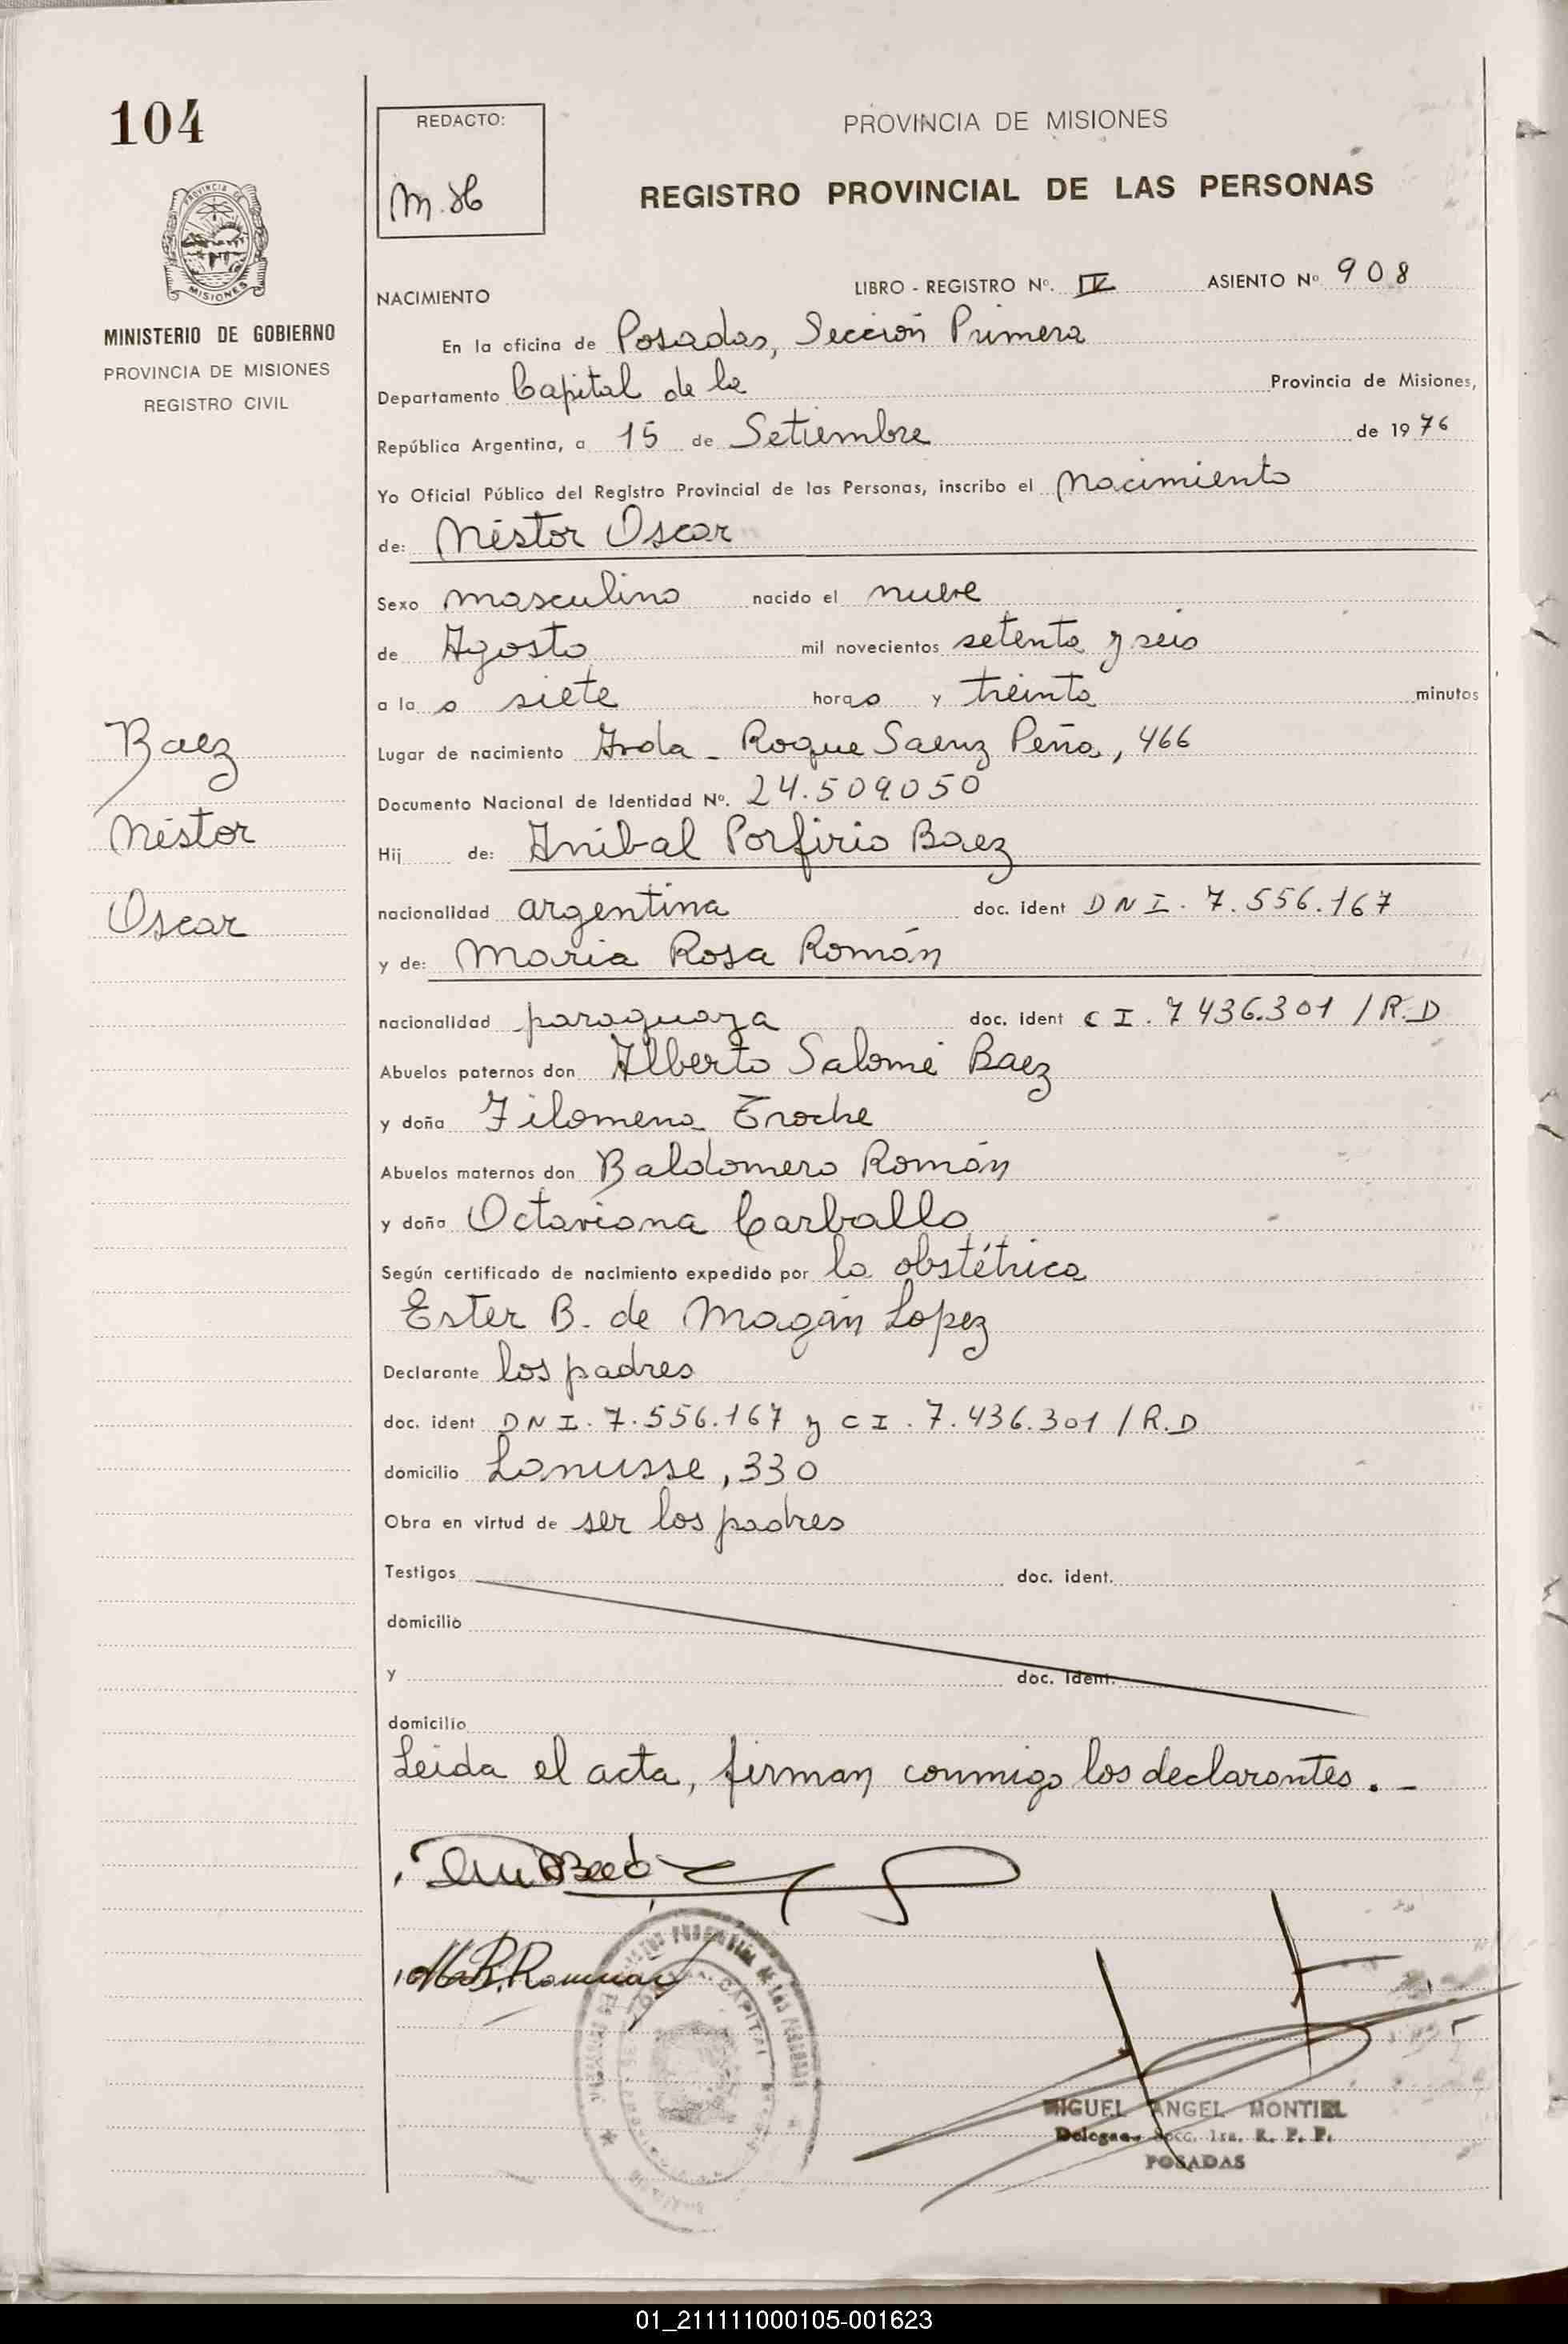 104
PROVINCIA DE
MISIONES
MINISTERIO DE GOBIERNO
PROVINCIA DE MISIONES
REGISTRO CIVIL
Baez
Néstor
Oscar
REDACTO:
PROVINCIA DE MISIONES
REGISTRO PROVINCIAL DE LAS PERSONAS
NACIMIENTO LIBRO - REGISTRO Nº. IV ASIENTO Nº 908
En la oficina de Posadas, Sección Primera
Departamento Capital de la Provincia de Misiones,
República Argentina, a 15 de Setiembre de 1976
Yo Oficial Público del Registro Provincial de las Personas, inscribo el Nacimiento
de: Néstor Oscar
Sexo masculino nacido el nueve
de Agosto mil novecientos setenta y seis
a la s siete horas y treinta minutos
Lugar de nacimiento Avda - Roque Saenz Peña, 466
Documento Nacional de Identidad Nº. 24.509.050
Hij de: Anibal Porfirio Baez
nacionalidad argentina doc. ident DNI. 7.556.167
y de: Maria Rosa Román
nacionalidad paraguaya doc. ident CI. 7 436.301 / R.D
Abuelos paternos don Alberto Salomé Baez
y doña Filomena Troche
Abuelos maternos don Baldomero Román
y doña Octaviana Carballo
Según certificado de nacimiento expedido por la obstétrica
Ester B. de Magán Lopez
Declarante los padres
doc. ident DNI. 7.556.167 y CI. 7.436.301 / R.D
domicilio Lanusse, 330
Obra en virtud de ser los padres
Testigos doc. ident.
domicilio
y doc. ident.
domicilio
Leida el acta, firman conmigo los declarantes. -
MIGUEL ANGEL MONTIEL
Secc. 1ra. R. P. P.
POSADAS
01_211111000105-001623